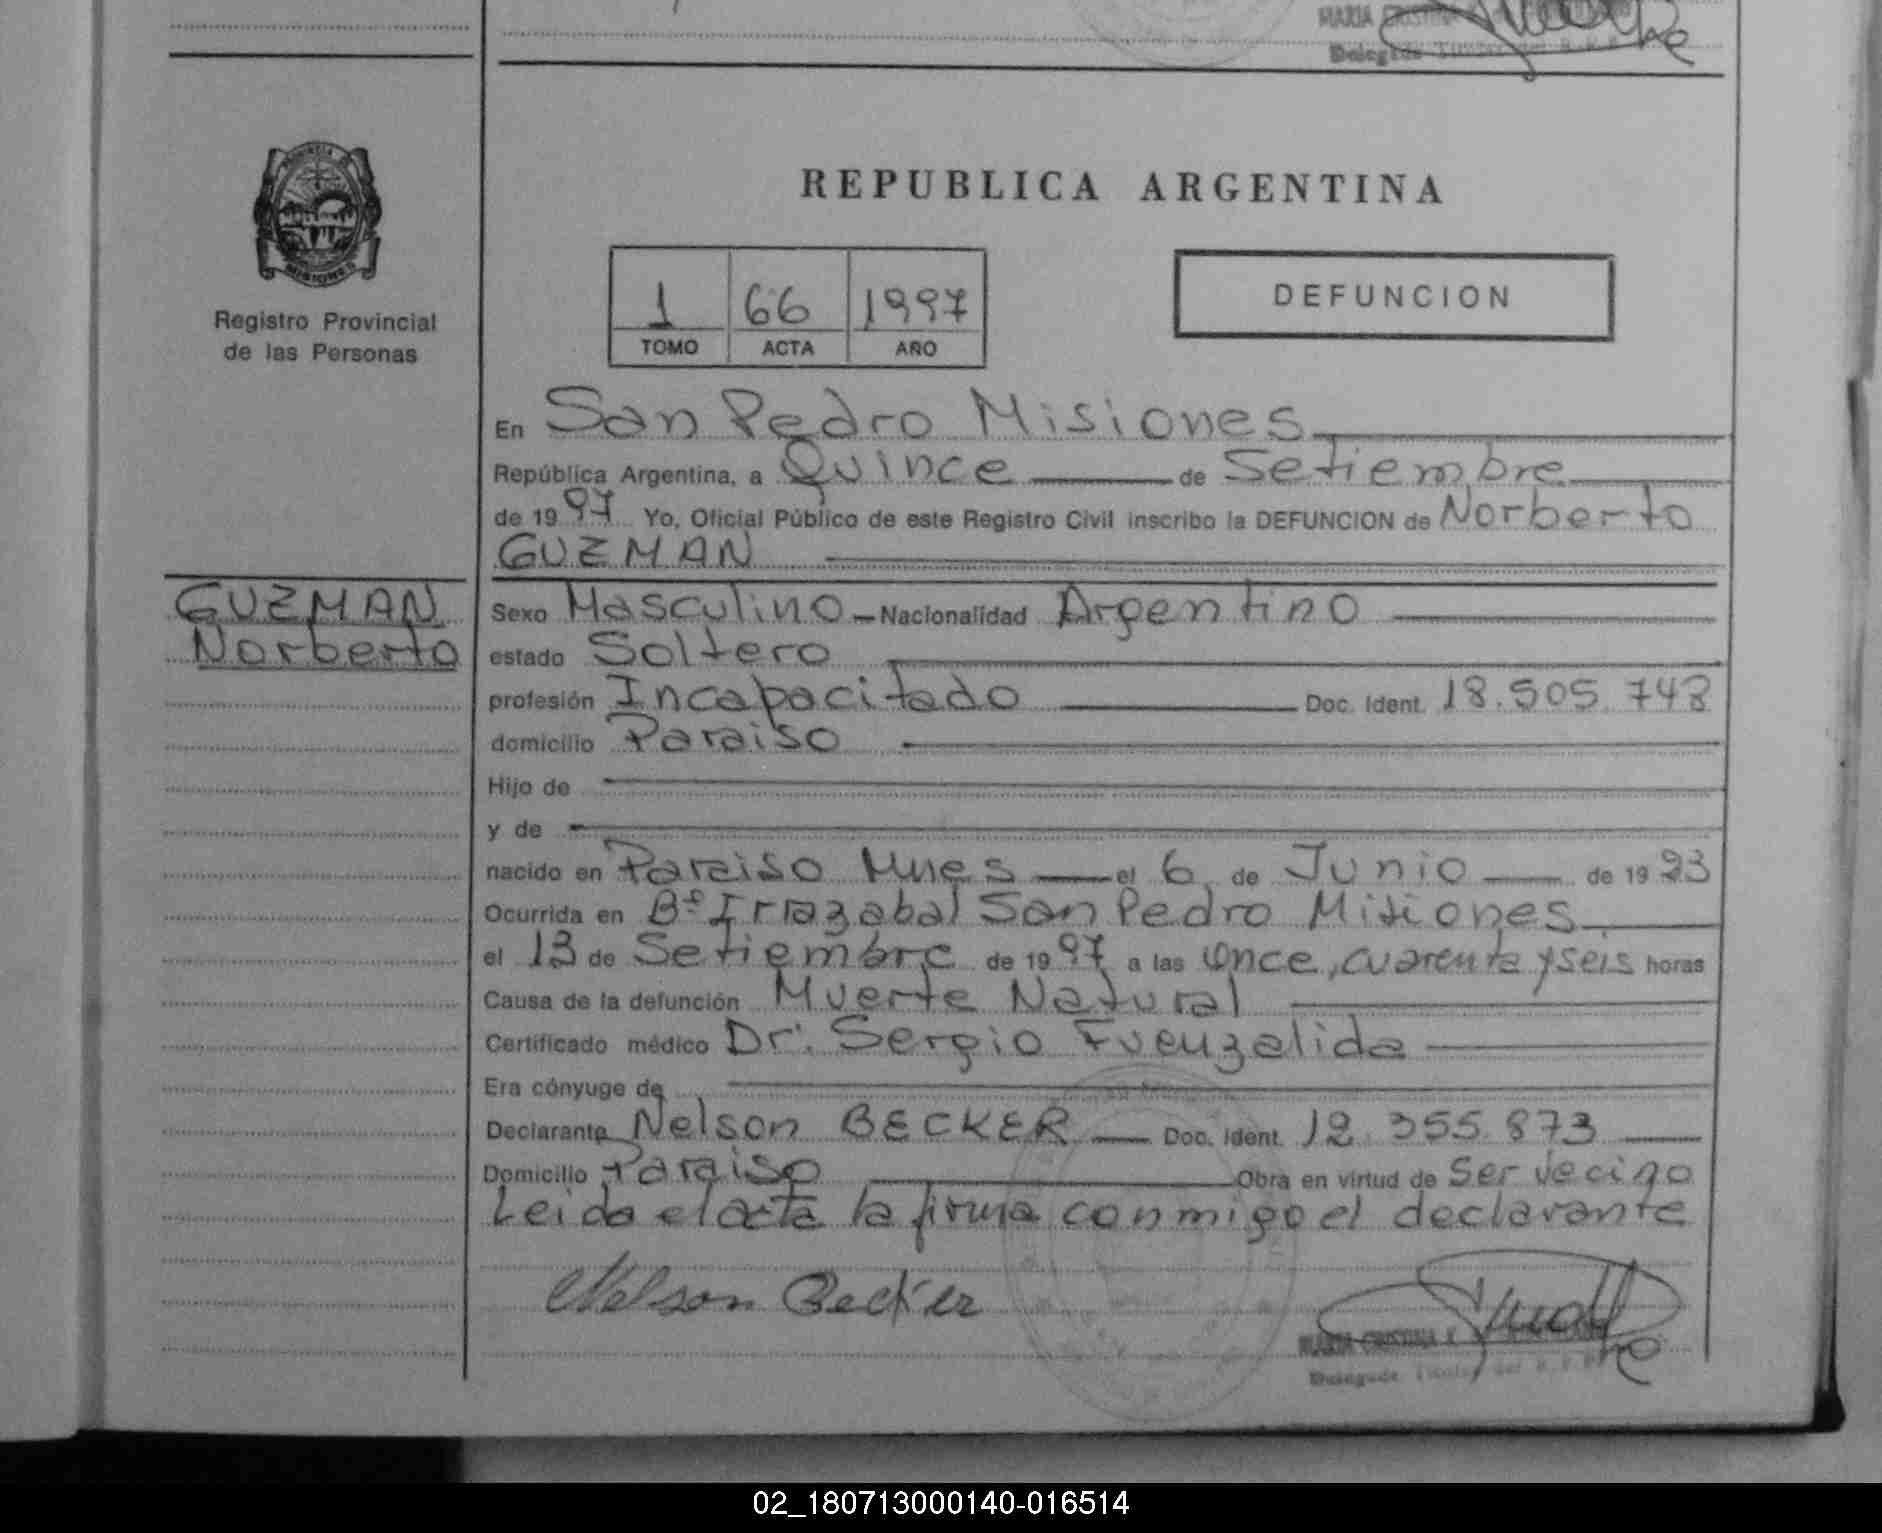 MARIA CRISTINA
Delegada Titular del R.P.P.
PROVINCIA DE
MISIONES
Registro Provincial
de las Personas
REPUBLICA ARGENTINA
1 66 1997
TOMO ACTA AÑO
DEFUNCION
En San Pedro Misiones
República Argentina, a Quince de Setiembre
de 19 97 Yo, Oficial Público de este Registro Civil inscribo la DEFUNCION de Norberto
GUZMAN
GUZMAN
Norberto
Sexo Masculino - Nacionalidad Argentino
estado Soltero
profesión Incapacitado Doc. Ident. 18.505.748
domicilio Paraiso
Hijo de
y de
nacido en Paraiso Mnes el 6 de Junio de 19 23
Ocurrida en Bº Irrazabal San Pedro Misiones
el 13 de Setiembre de 19 97 a las Once, cuarenta y seis horas
Causa de la defunción Muerte Natural
Certificado médico Dr: Sergio Fuenzalida
Era cónyuge de
Declarante Nelson BECKER Doc. Ident. 12.355.873
Domicilio Paraiso Obra en virtud de Ser vecino
Leida el acta la firma conmigo el declarante
Nelson Becker
MARIA CRISTINA
Delegada Titular del R.P.P.
02_180713000140-016514